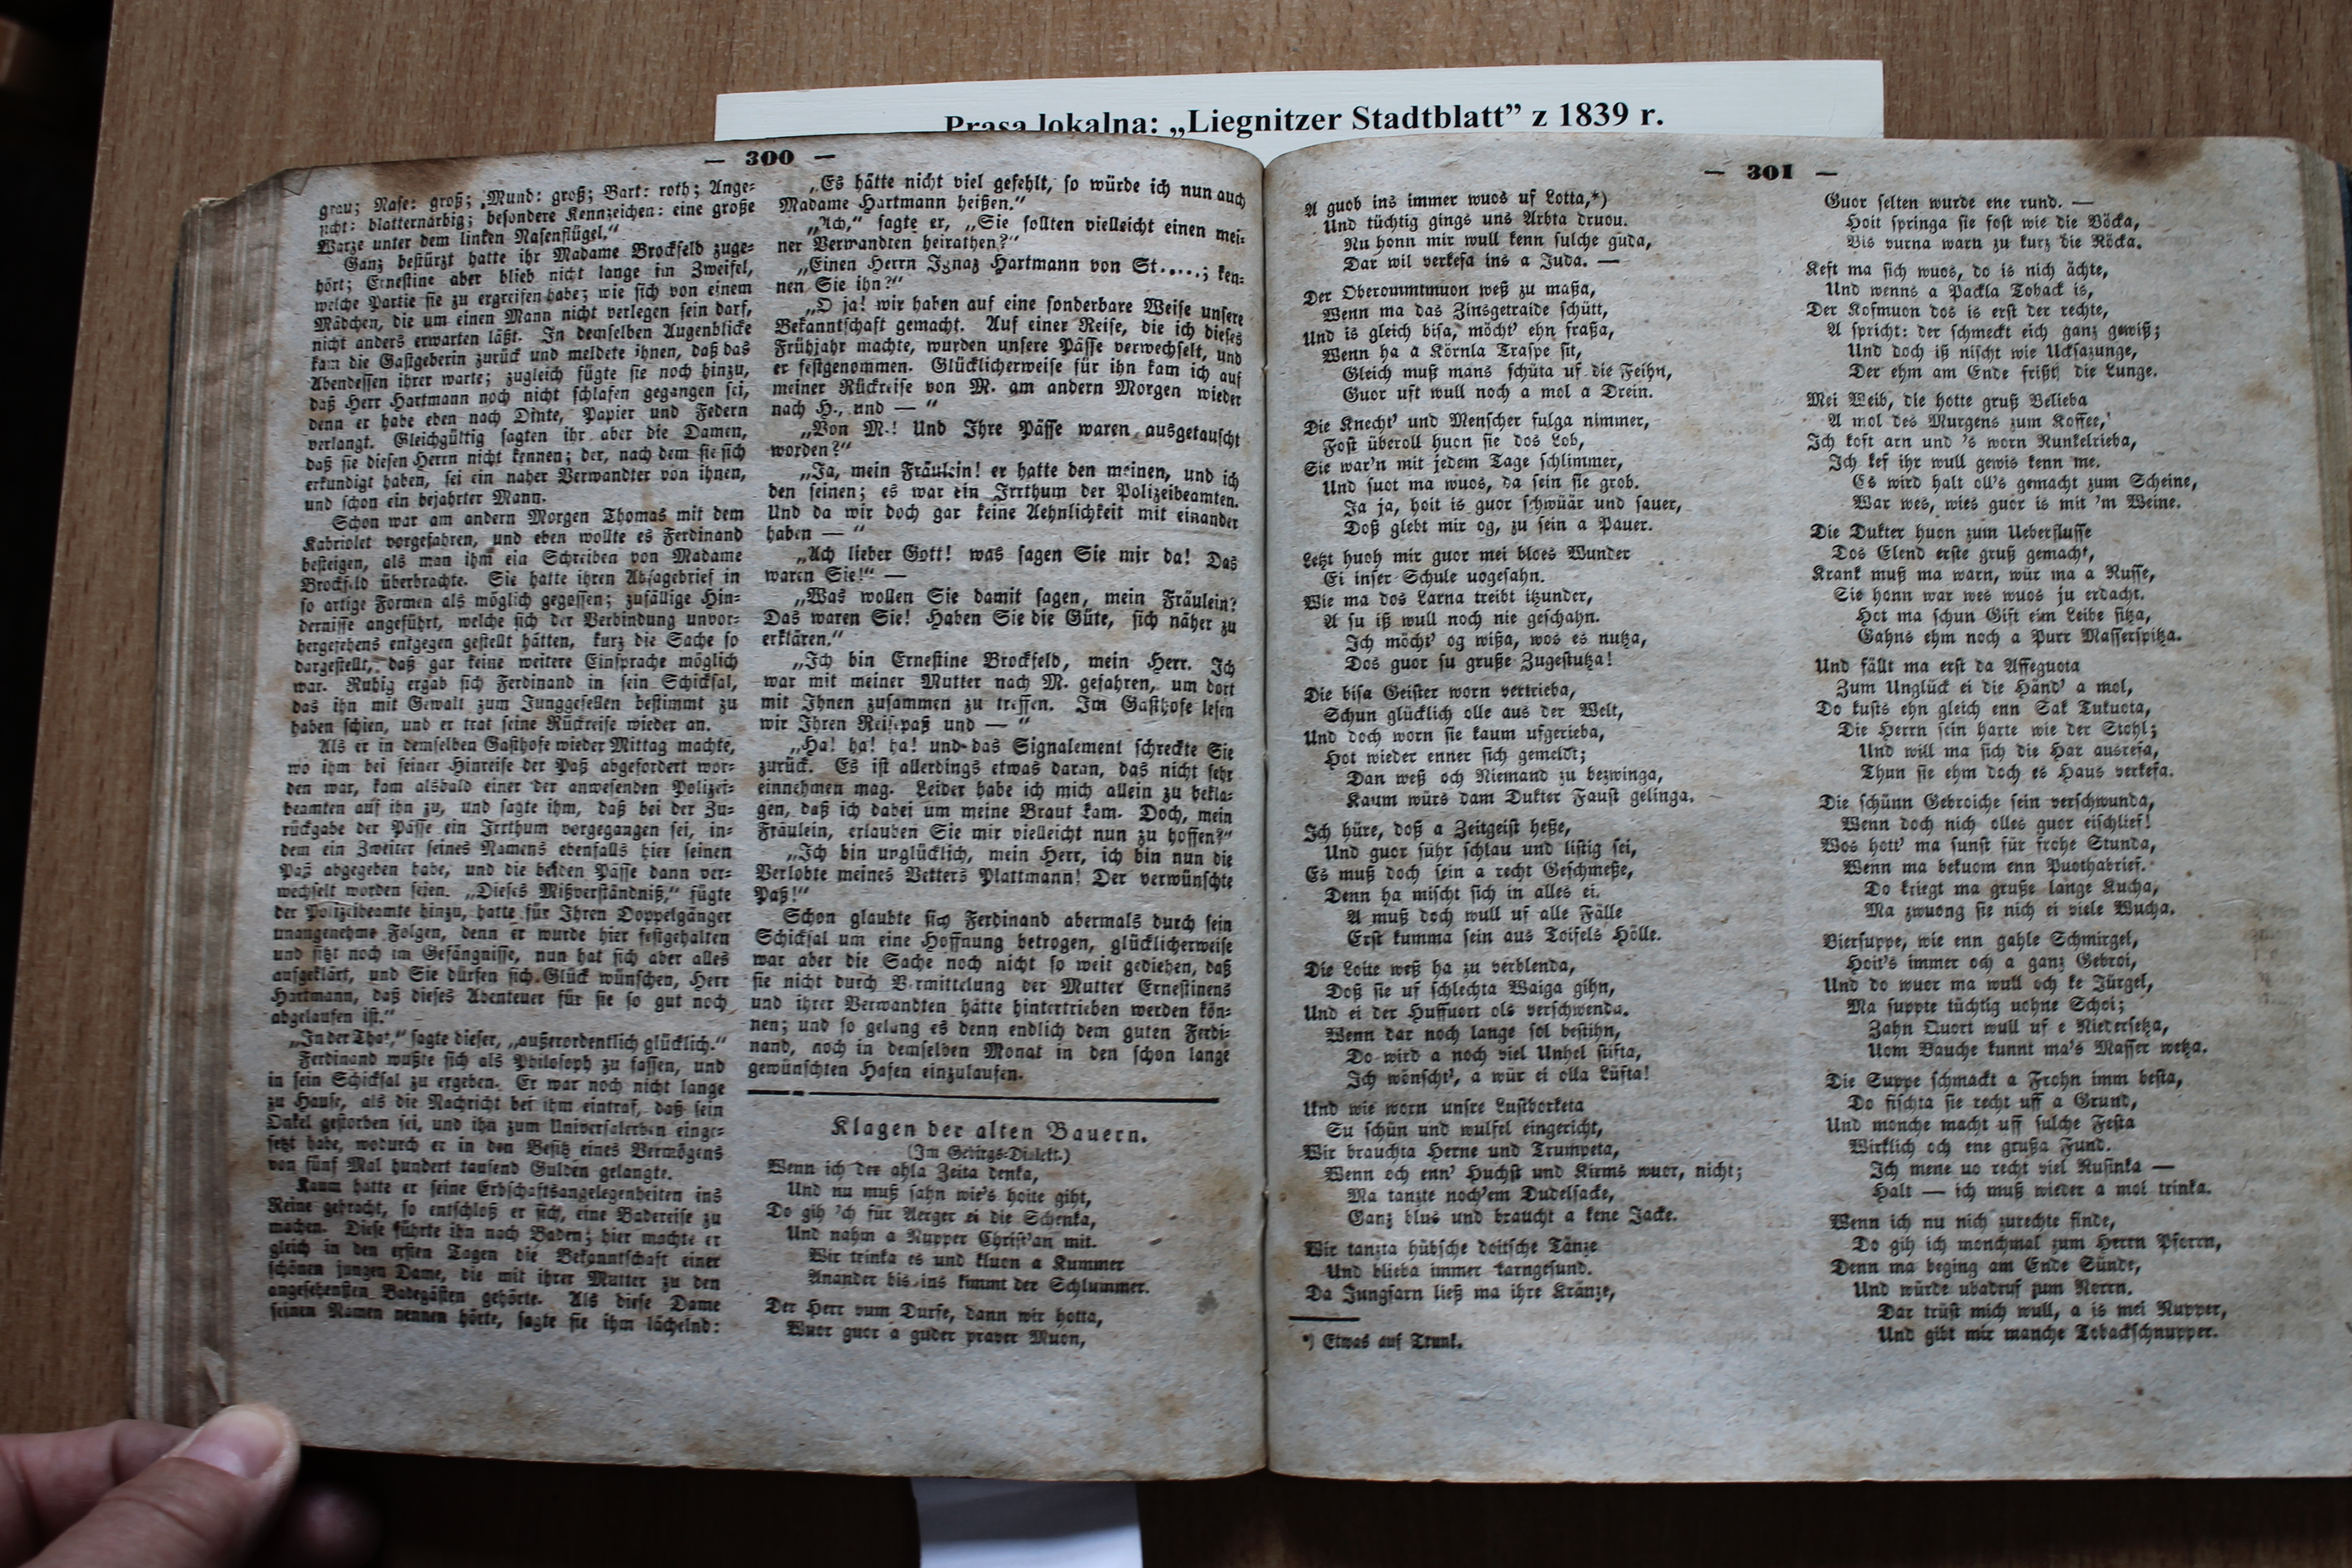 Prasa lokalna: „Liegnitzer Stadtblatt” z 1839 r.
— 300 —
grau; Nase: groß; Mund: groß; Bart: roth; Ange-
sicht: blatternarbig; besondere Kennzeichen: eine große
Warze unter dem linken Nasenflügel.“
Ganz bestürzt hatte ihr Madame Brockfeld zuge-
hört; Ernestine aber blieb nicht lange im Zweifel,
welche Partie sie zu ergreifen habe; wie sich von einem
Mädchen, die um einen Mann nicht verlegen sein darf,
nicht anders erwarten läßt. In demselben Augenblicke
kam die Gastgeberin zurück und meldete ihnen, daß das
Abendessen ihrer warte; zugleich fügte sie noch hinzu,
daß Herr Hartmann noch nicht schlafen gegangen sei,
denn er habe eben nach Dinte, Papier und Federn
verlangt. Gleichgültig sagten ihr aber die Damen,
daß sie diesen Herrn nicht kennen; der, nach dem sie sich
erkundigt haben, sei ein naher Verwandter von ihnen,
und schon ein bejahrter Mann.
Schon war am andern Morgen Thomas mit dem
Kabriolet vorgefahren, und eben wollte es Ferdinand
besteigen, als man ihm ein Schreiben von Madame
Brockfeld überbrachte. Sie hatte ihren Absagebrief in
so artige Formen als möglich gegossen; zufällige Hin-
dernisse angeführt, welche sich der Verbindung unvor-
hergesehens entgegen gestellt hätten, kurz die Sache so
dargestellt, daß gar keine weitere Einsprache möglich
war. Ruhig ergab sich Ferdinand in sein Schicksal,
das ihn mit Gewalt zum Junggesellen bestimmt zu
haben schien, und er trat seine Rückreise wieder an.
Als er in demselben Gasthofe wieder Mittag machte,
wo ihm bei seiner Hinreise der Paß abgefordert wor-
den war, kam alsbald einer der anwesenden Polizei-
beamten auf ihn zu, und sagte ihm, daß bei der Zu-
rückgabe der Pässe ein Irrthum vorgegangen sei, in-
dem ein Zweiter seines Namens ebenfalls hier seinen
Paß abgegeben habe, und die beiden Pässe dann ver-
wechselt worden seien. „Dieses Mißverständniß,“ fügte
der Polizeibeamte hinzu, hatte für Ihren Doppelgänger
unangenehme Folgen, denn er wurde hier festgehalten
und sitzt noch im Gefängnisse, nun hat sich aber alles
aufgeklärt, und Sie dürfen sich Glück wünschen, Herr
Hartmann, daß dieses Abenteuer für sie so gut noch
abgelaufen ist.“
„In der That,“ sagte dieser, „außerordentlich glücklich.“
Ferdinand wußte sich als Philosoph zu fassen, und
in sein Schicksal zu ergeben. Er war noch nicht lange
zu Hause, als die Nachricht bei ihm eintraf, daß sein
Onkel gestorben sei, und ihn zum Universalerben einge-
setzt habe, wodurch er in den Besitz eines Vermögens
von fünf Mal hundert tausend Gulden gelangte.
Kaum hatte er seine Erbschaftsangelegenheiten ins
Reine gebracht, so entschloß er sich, eine Badereise zu
machen. Diese führte ihn nach Baden; hier machte er
gleich in den ersten Tagen die Bekanntschaft einer
schönen jungen Dame, die mit ihrer Mutter zu den
angesehensten Badegästen gehörte. Als diese Dame
seinen Namen nennen hörte, sagte sie ihm lächelnd:
„Es hätte nicht viel gefehlt, so würde ich nun auch
Madame Hartmann heißen.“
„Ach,“ sagte er, „Sie sollten vielleicht einen mei-
ner Verwandten heirathen?“
„Einen Herrn Ignaz Hartmann von St.....; ken-
nen Sie ihn?“
„O ja! wir haben auf eine sonderbare Weise unsere
Bekanntschaft gemacht. Auf einer Reise, die ich dieses
Frühjahr machte, wurden unsere Pässe verwechselt, und
er festgenommen. Glücklicherweise für ihn kam ich auf
meiner Rückreise von M. am andern Morgen wieder
nach H., und — “
„Von M.! Und Ihre Pässe waren ausgetauscht
worden?“
„Ja, mein Fräulein! er hatte den meinen, und ich
den seinen; es war ein Irrthum der Polizeibeamten.
Und da wir doch gar keine Aehnlichkeit mit einander
haben — “
„Ach lieber Gott! was sagen Sie mir da! Das
waren Sie!“ —
„Was wollen Sie damit sagen, mein Fräulein?
Das waren Sie! Haben Sie die Güte, sich näher zu
erklären.“
„Ich bin Ernestine Brockfeld, mein Herr. Ich
war mit meiner Mutter nach M. gefahren, um dort
mit Ihnen zusammen zu treffen. Im Gasthofe lesen
wir Ihren Reisepaß und — “
„Ha! ha! ha! und das Signalement schreckte Sie
zurück. Es ist allerdings etwas daran, das nicht sehr
einnehmen mag. Leider habe ich mich allein zu bekla-
gen, daß ich dabei um meine Braut kam. Doch, mein
Fräulein, erlauben Sie mir vielleicht nun zu hoffen?“
„Ich bin unglücklich, mein Herr, ich bin nun die
Verlobte meines Vetters Plattmann! Der verwünschte
Paß!“
Schon glaubte sich Ferdinand abermals durch sein
Schicksal um eine Hoffnung betrogen, glücklicherweise
war aber die Sache noch nicht so weit gediehen, daß
sie nicht durch Vermittelung der Mutter Ernestinens
und ihrer Verwandten hätte hintertrieben werden kön-
nen; und so gelang es denn endlich dem guten Ferdi-
nand, noch in demselben Monat in den schon lange
gewünschten Hafen einzulaufen.
Klagen der alten Bauern.
(Im Gebirgs-Dialekt.)
Wenn ich der ahla Zeita denka,
Und nu muß sahn wie's hoite giht,
Do gih 'ch für Aerger ei die Schenka,
Und nahm a Nupper Christ'an mit.
Wir trinka es und kluon a Kummer
Anander bis ins kimmt der Schlummer.
Der Herr vum Durfe, dann wir hotta,
Wuor guor a guder praver Muon,
— 301 —
A guob ins immer wuos uf Lotta,*)
Und tüchtig gings uns Arbta druou.
Nu honn mir wull kenn sulche guda,
Dar wil verkefa ins a Juda. —
Der Oberommtmuon weß zu maßa,
Wenn ma das Zinsgetraide schütt,
Und is gleich bisa, möcht' ehn fraßa,
Wenn ha a Körnla Traspe sit,
Gleich muß mans schüta uf die Feihn,
Guor uft wull noch a mol a Drein.
Die Knecht' und Menscher fulga nimmer,
Fost überoll huon sie dos Lob,
Sie war'n mit jedem Tage schlimmer,
Und suot ma wuos, da sein sie grob.
Ja ja, hoit is guor schwüär und sauer,
Doß glebt mir og, zu sein a Pauer.
Letzt huoh mir guor mei bloes Wunder
Ei inser Schule uogesahn.
Wie ma dos Larna treibt itzunder,
A su iß wull noch nie geschahn.
Ich möcht' og wißa, wos es nutza,
Dos guor su gruße Zugestutza!
Die bisa Geister worn vertrieba,
Schun glücklich olle aus der Welt,
Und doch worn sie kaum ufgerieba,
Hot wieder enner sich gemeldt;
Dan weß och Niemand zu bezwinga,
Kaum würs dam Dukter Faust gelinga.
Ich hüre, doß a Zeitgeist heße,
Und guor sühr schlau und listig sei,
Es muß doch sein a recht Geschmeße,
Denn ha mischt sich in alles ei.
A muß doch wull uf alle Fälle
Erst kumma sein aus Toifels Hölle.
Die Loite weß ha zu verblenda,
Doß sie uf schlechta Waiga gihn,
Und ei der Huffuort ols verschwenda.
Wenn dar noch lange sol bestihn,
Do wird a noch viel Unhel stifta,
Ich wönscht', a wür ei olla Lüfta!
Und wie worn unsre Lustborketa
Su schün und wulfel eingericht,
Wir brauchta Herne und Trumpeta,
Wenn och enn' Huchst und Kirms wuor, nicht;
Ma tanzte noch'em Dudelsacke,
Ganz blus und braucht a kene Jacke.
Wir tanzta hübsche doitsche Tänze
Und blieba immer karngesund.
Da Jungfarn ließ ma ihre Kränze,
*) Etwas auf Trunk.
Guor selten wurde ene rund. —
Hoit springa sie fost wie die Böcka,
Bis vurna warn zu kurz die Röcka.
Keft ma sich wuos, do is nich ächte,
Und wenns a Packla Toback is,
Der Kofmuon dos is erst der rechte,
A spricht: der schmeckt eich ganz gewiß;
Und doch iß nischt wie Ucksazunge,
Der ehm am Ende frißt die Lunge.
Mei Weib, die hotte gruß Belieba
A mol des Murgens zum Koffee,
Ich koft arn und 's worn Runkelrieba,
Ich kef ihr wull gewis kenn me.
Es wird halt oll's gemacht zum Scheine,
War wes, wies guor is mit 'm Weine.
Die Dukter huon zum Ueberflusse
Dos Elend erste gruß gemacht,
Krank muß ma warn, wür ma a Russe,
Sie honn war wes wuos ju erdacht.
Hot ma schun Gift eim Leibe sitza,
Gahns ehm noch a Purr Masserspitza.
Und fällt ma erst da Affeguota
Zum Unglück ei die Händ' a mol,
Do kusts ehn gleich enn Sak Tukuota,
Die Herrn sein harte wie der Stohl;
Und will ma sich die Har ausresa,
Thun sie ehm doch es Haus verkefa.
Die schünn Gebroiche sein verschwunda,
Wenn doch nich olles guor eischlief!
Wos hott' ma sunst für frohe Stunda,
Wenn ma bekuom enn Puothabrief.
Do kriegt ma gruße lange Kucha,
Ma zwuong sie nich ei viele Wucha.
Biersuppe, wie enn gahle Schmirgel,
Hoit's immer och a ganz Gebroi,
Und do wuor ma wull och ke Jürgel,
Ma suppte tüchtig uohne Schoi;
Zahn Quort wull uf e Niedersetza,
Uom Bauche kunnt ma's Masser wetza.
Die Suppe schmackt a Frohn imm besta,
Do fischta sie recht uff a Grund,
Und monche macht uff sulche Festa
Wirklich och ene grußa Fund.
Ich mene uo recht viel Rusinka —
Halt — ich muß wieder a mol trinka.
Wenn ich nu nich zurechte finde,
Do gih ich monchmal zum Herrn Pforrn,
Denn ma beging am Ende Sünde,
Und würde ubadruf zum Norrn.
Dar trüst mich wull, a is mei Nupper,
Und gibt mir manche Tobackschnupper.